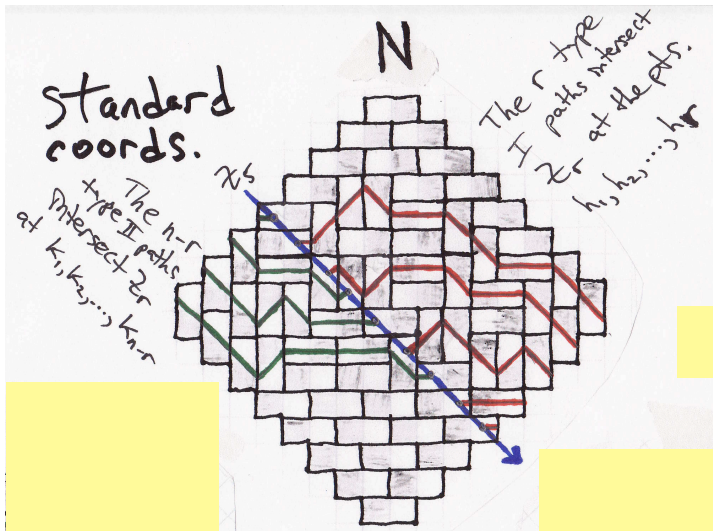 N
Standard
coords.
The r type
I paths intersect
χr at the pts.
h₁, h₂, ..., hr
The n-r
type II paths
intersect χr
at k₁, k₂, ..., kn-r